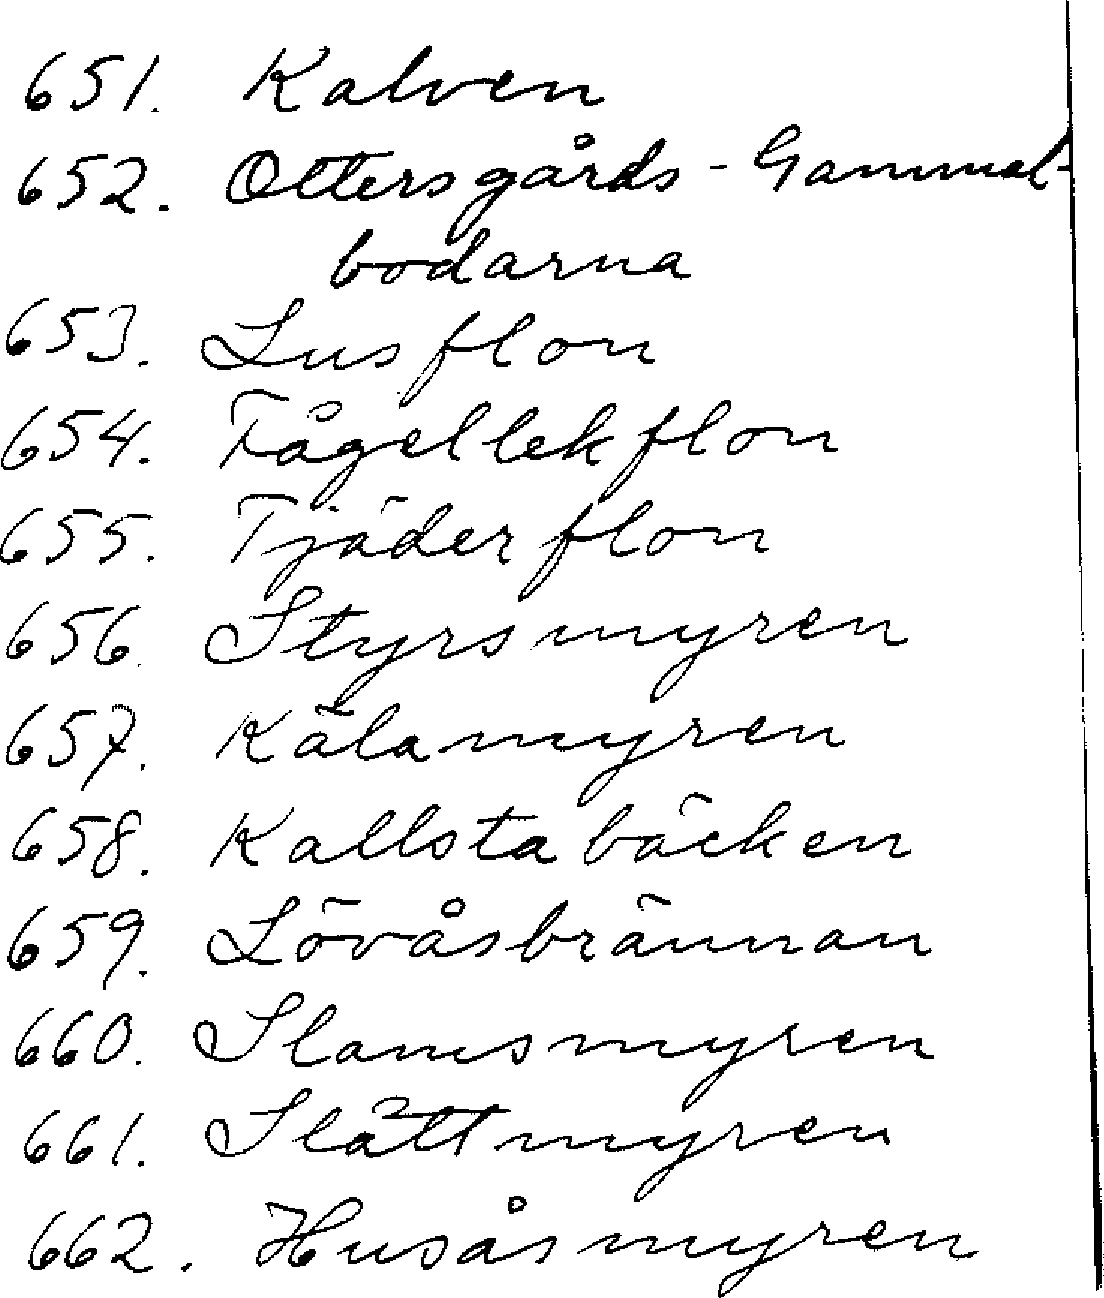 651. Kalven
652. Ottersgårds-Gammel-
bodarna
653. Lusflon
654. Fågellekflon
655. Tjäderflon
656. Styrsmyren
657. Kälamyren
658. Kallstabäcken
659. Lövåsbrännan
660. Slamsmyren
661. Slåttmyren
662. Husåsmyren